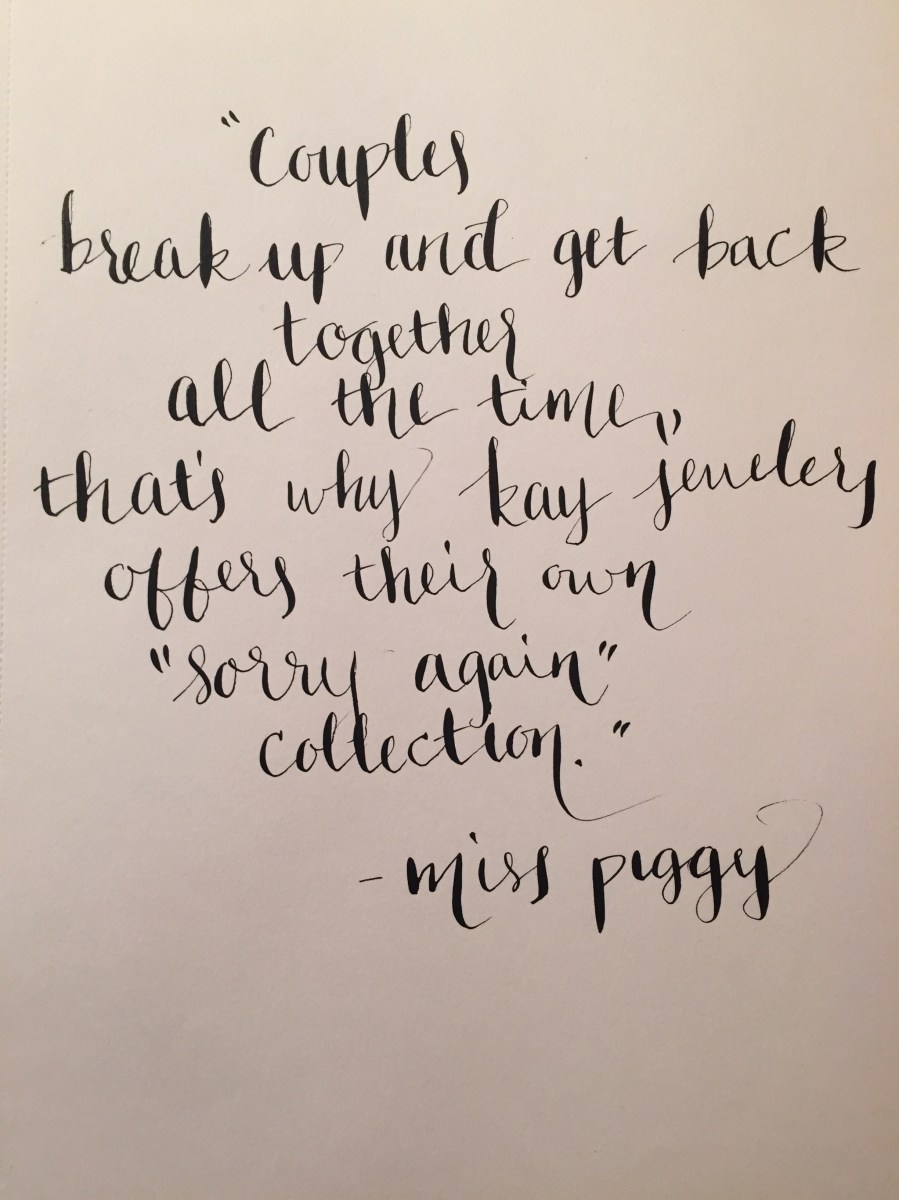 "Couples
break up and get back
together
all the time,"
that's why kay jewelers
offers their own
"sorry again"
collection."
- miss piggy